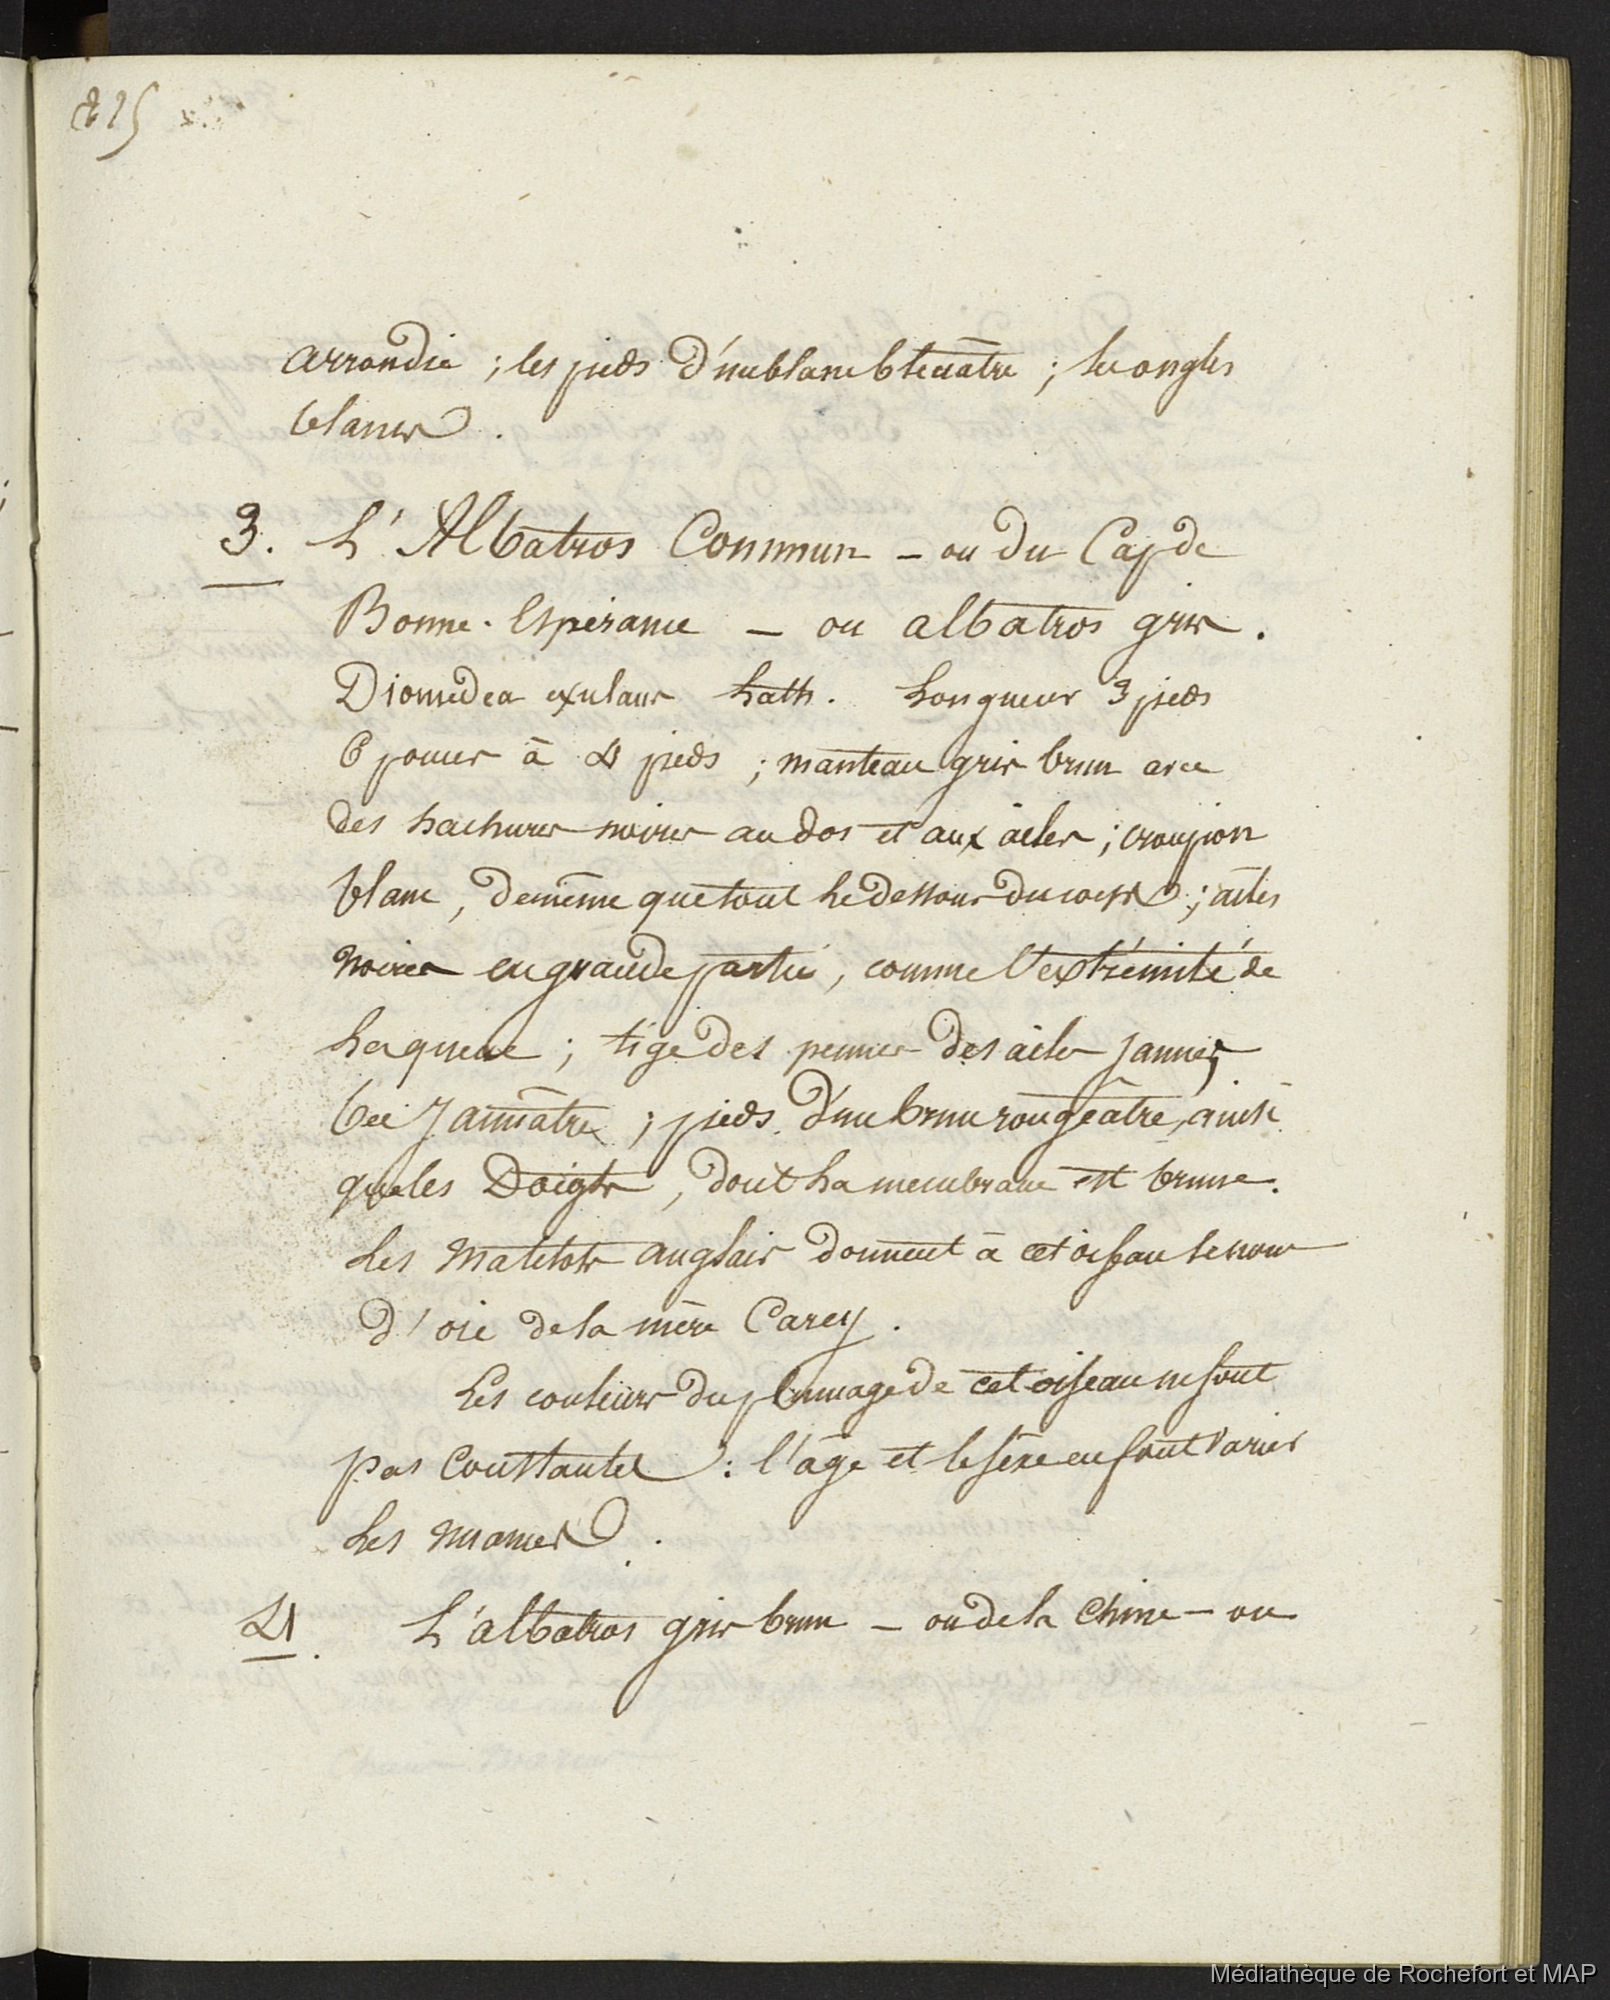 825
arrondie ; les pieds d'un blanc bleuâtre ; les ongles
blancs .
3. L'Albatros Commun – ou du Cap de
Bonne-Espérance – ou albatros gris .
Diomedea exulans Lath. Longueur 3 pieds
6 pouces à 4 pieds ; manteau gris brun avec
des hachures noires au dos et aux ailes ; croupion
blanc , de même que tout le dessous du corps ; ailes
noires en grande partie , comme l'extrémité de
la queue ; tige des pennes des ailes jaunes ;
bec jaunâtre ; pieds d'un brun rougeâtre, ainsi
que les Doigts , dont la membrane est brune .
Les Matelots anglais donnent à cet oiseau le nom
d'oie de la mère Carey .
Les couleurs du plumage de cet oiseau ne sont
pas constantes : l'âge et le sexe en font varier
les nuances .
4. L'albatros gris brun – ou de la Chine – ou
Médiathèque de Rochefort et MAP